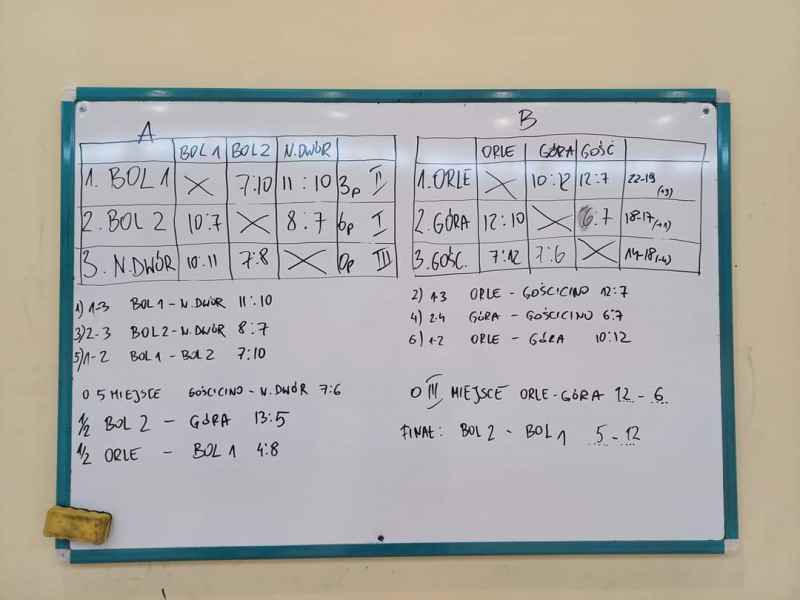 A
BOL 1 BOL 2 N.DWÓR
1. BOL 1 X 7:10 11:10 3p II
2. BOL 2 10:7 X 8:7 6p I
3. N.DWÓR 10:11 7:8 X 0p III
1) 1-3 BOL 1 - N.DWÓR 11:10
3) 2-3 BOL 2 - N.DWÓR 8:7
5) 1-2 BOL 1 - BOL 2 7:10
O 5 MIEJSCE GOŚCICINO - N.DWÓR 7:6
1/2 BOL 2 - GÓRA 13:5
1/2 ORLE - BOL 1 4:8
B
ORLE GÓRA GOŚĆ
1. ORLE X 10:12 12:7 22-19 (+3)
2. GÓRA 12:10 X 6:7 18-17 (+1)
3. GOŚC. 7:12 7:6 X 14-18 (-4)
2) 1-3 ORLE - GOŚCICINO 12:7
4) 2-4 GÓRA - GOŚCICINO 6:7
6) 1-2 ORLE - GÓRA 10:12
O III MIEJSCE ORLE - GÓRA 12 - 6
FINAŁ: BOL 2 - BOL 1 5 - 12